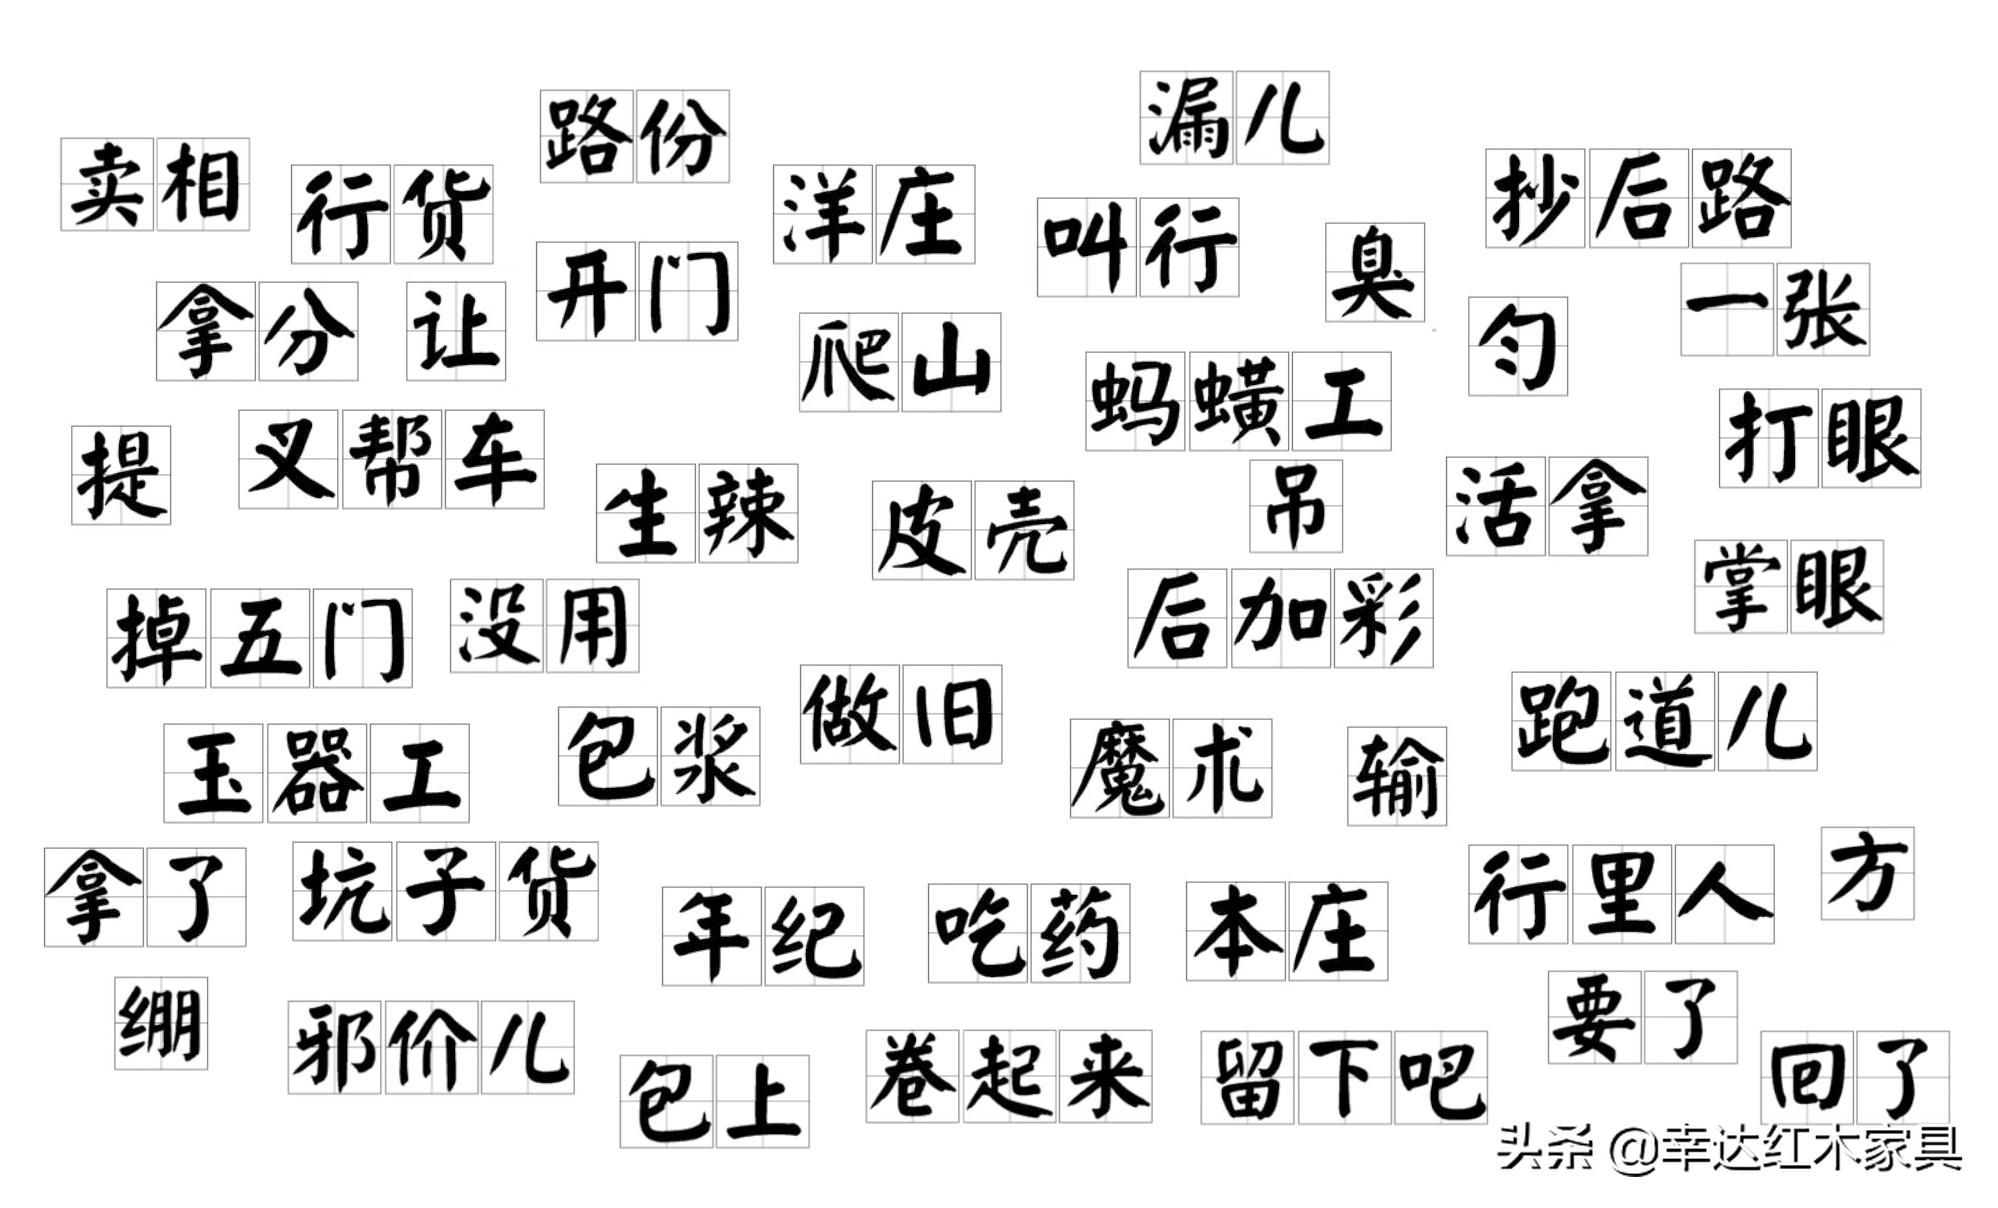 漏儿
路份
卖相
行货
洋庄
抄后路
叫行
臭
开门
拿分
让
一张
勻
爬山
蚂蟥工
打眼
提
叉帮车
生辣
皮壳
吊
活拿
掌眼
掉五门
没用
后加彩
做旧
跑道儿
玉器工
包浆
魔术
输
拿了
坑子货
年纪
吃药
本庄
行里人
方
绷
邪价儿
要了
包上
卷起来
留下吧
回了
头条 @幸达红木家具